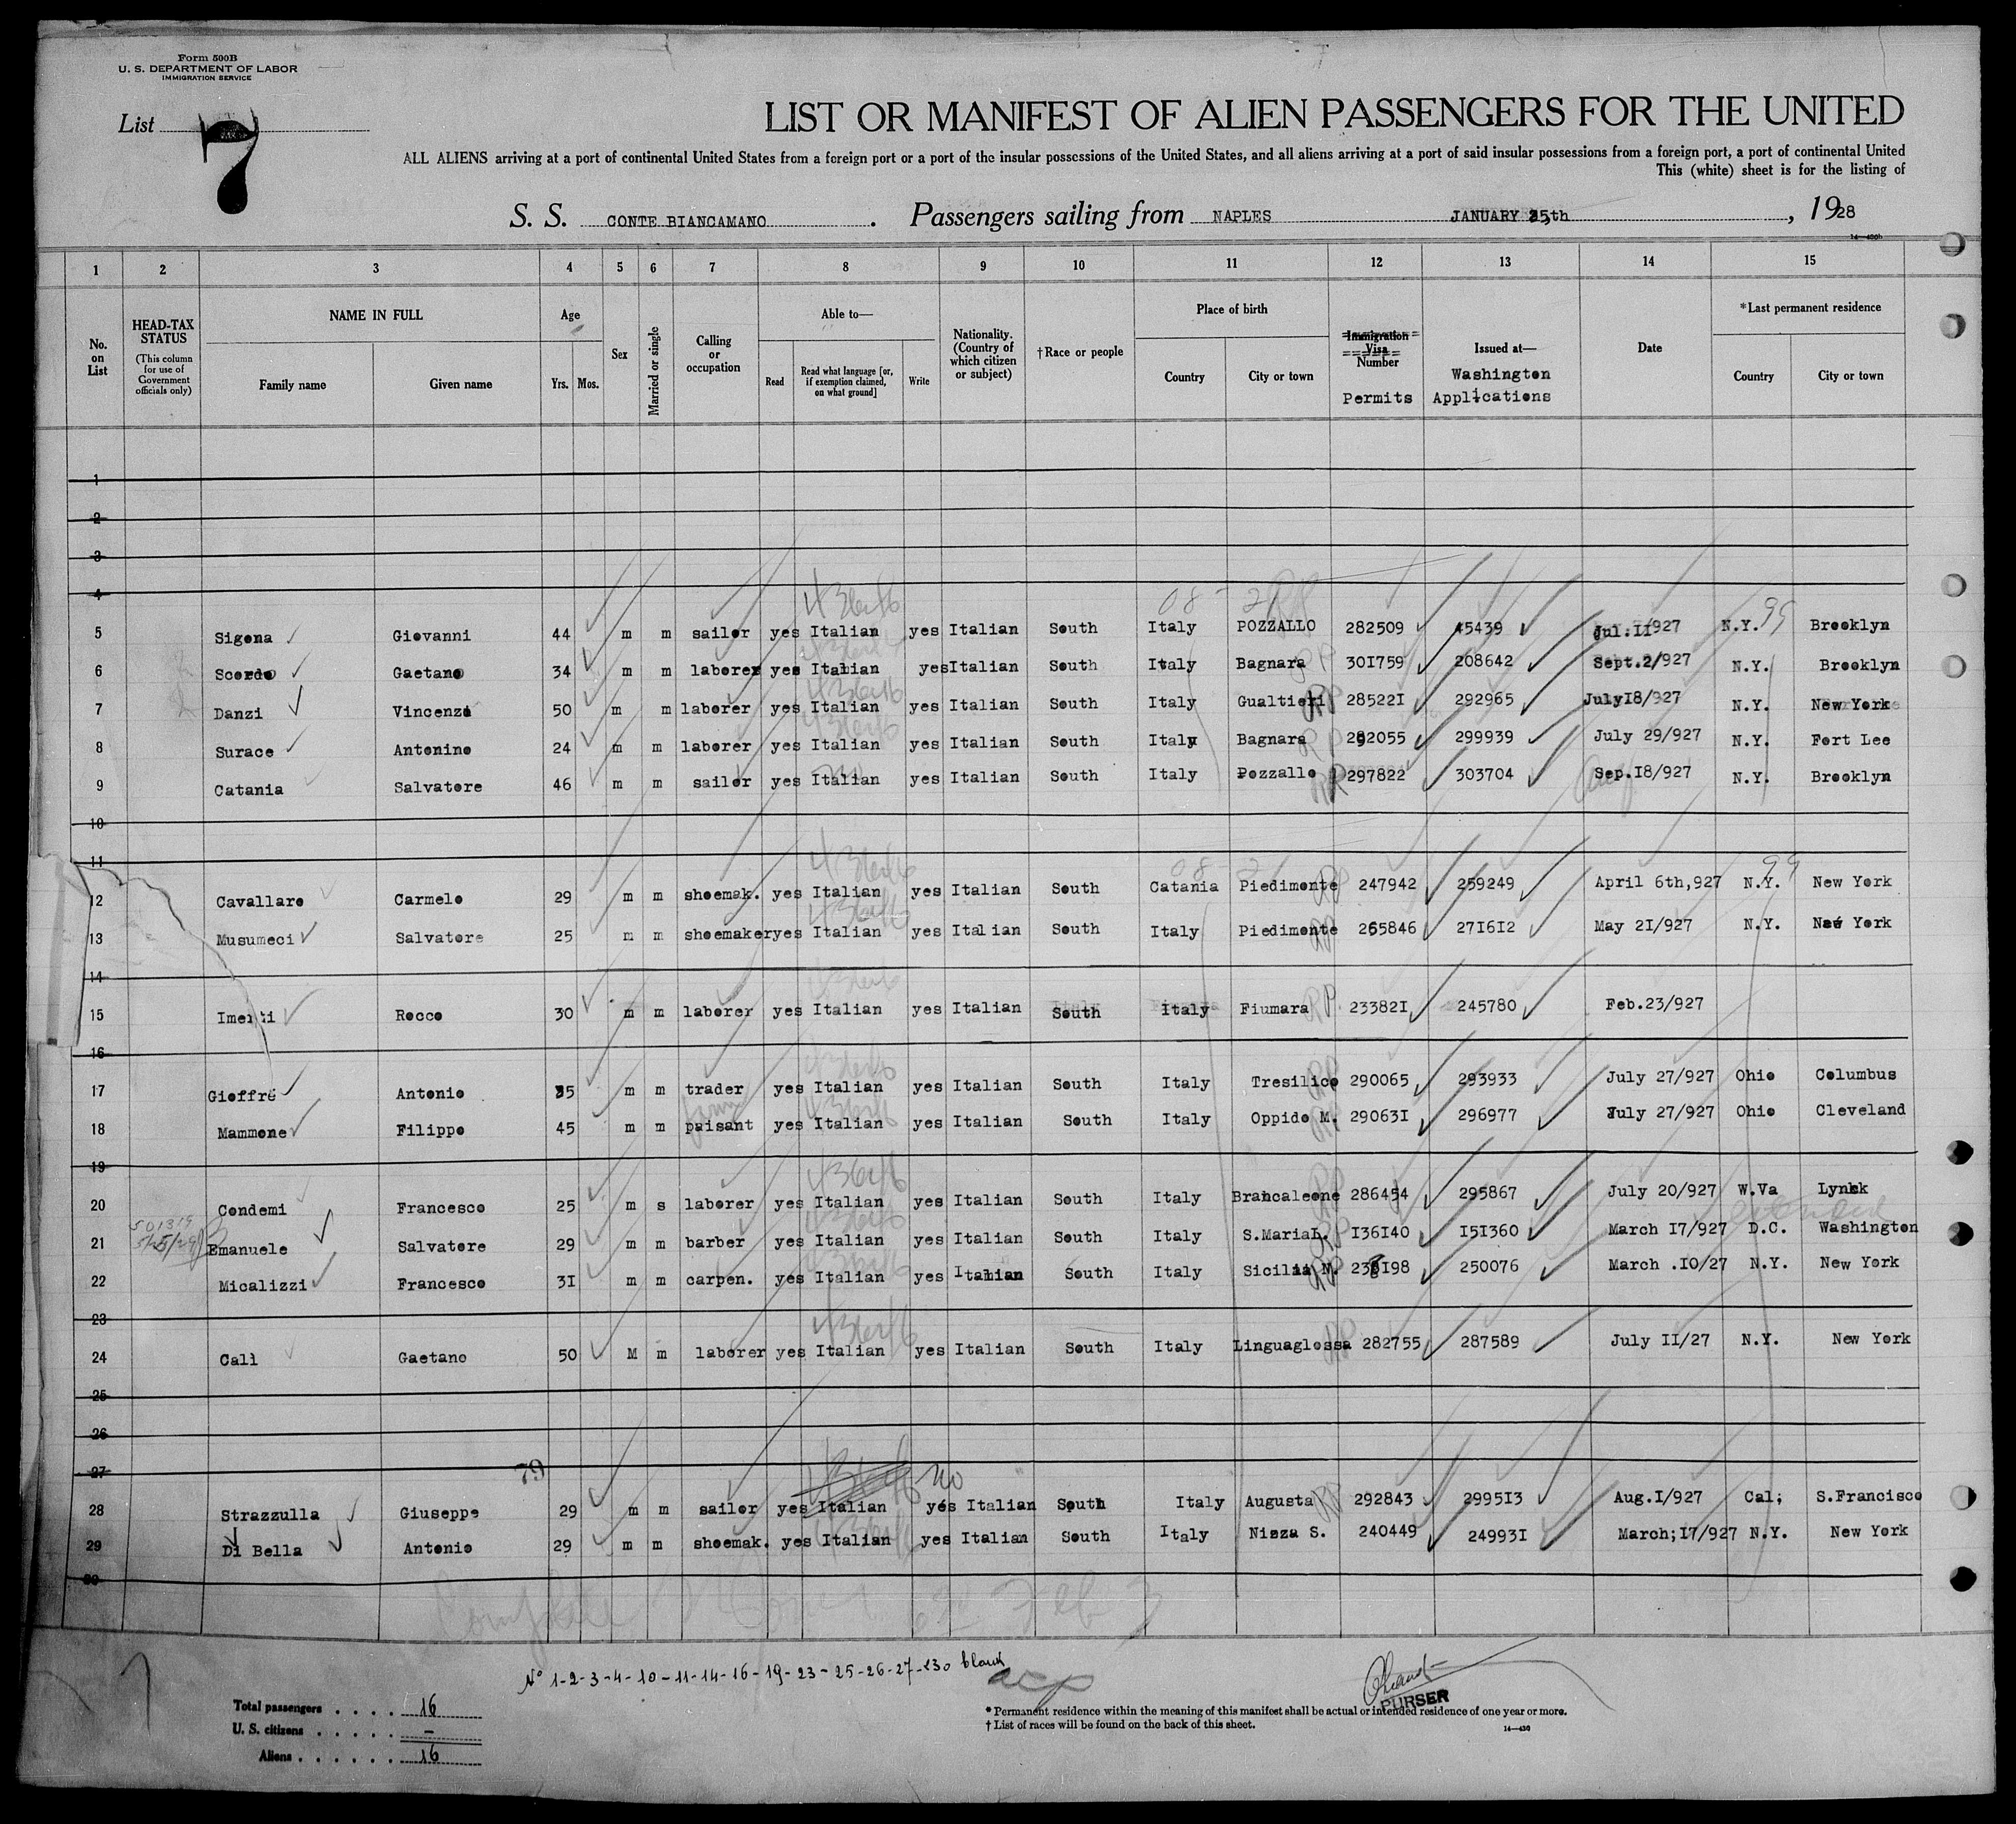 Form 500B
U. S. DEPARTMENT OF LABOR
IMMIGRATION SERVICE
List 7
LIST OR MANIFEST OF ALIEN PASSENGERS FOR THE UNITED
ALL ALIENS arriving at a port of continental United States from a foreign port or a port of the insular possessions of the United States, and all aliens arriving at a port of said insular possessions from a foreign port, a port of continental United
This (white) sheet is for the listing of
S. S. CONTE BIANCAMANO. Passengers sailing from NAPLES JANUARY 25th, 1928
14—430b
1 2 3 4 5 6 7 8 9 10 11 12 13 14 15
No. on List
HEAD-TAX STATUS (This column for use of Government officials only)
NAME IN FULL Family name Given name
Age Yrs. Mos.
Sex
Married or single
Calling or occupation
Able to— Read Read what language [or, if exemption claimed, on what ground] Write
Nationality. (Country of which citizen or subject)
†Race or people
Place of birth Country City or town
Immigration Visa Number Permits
Issued at— Washington Applications
Date
*Last permanent residence Country City or town
1
2
3
4
08 - 21 99
5 Sigona Giovanni 44 m m sailor yes Italian yes Italian South Italy POZZALLO 282509 45439 Jul.II/927 N.Y. Brooklyn
6 Scordo Gaetano 34 m m laborer yes Italian yes Italian South Italy Bagnara 30I759 208642 Sept.2/927 N.Y. Brooklyn
7 Danzi Vincenzo 50 m m laborer yes Italian yes Italian South Italy Gualtieri RP 28522I 292965 JulyI8/927 N.Y. New York
8 Surace Antonino 24 m m laborer yes Italian yes Italian South Italy Bagnara RP 292055 299939 July 29/927 N.Y. Fort Lee
9 Catania Salvatore 46 m m sailor yes Italian yes Italian South Italy Pozzallo RP 297822 303704 Sep.I8/927 N.Y. Brooklyn
10
11
08 - 21 99
12 Cavallaro Carmelo 29 m m shoemak. yes Italian yes Italian South Catania Piedimonte RP 247942 259249 April 6th,927 N.Y. New York
13 Musumeci Salvatore 25 m m shoemaker yes Italian yes Italian South Italy Piedimonte RP 265846 27I6I2 May 2I/927 N.Y. New York
14
15 Imerti Rocco 30 m m laborer yes Italian yes Italian South Italy Fiumara RP 23382I 245780 Feb.23/927
16
17 Gioffrè Antonio 35 m m trader yes Italian yes Italian South Italy Tresilico RP 290065 293933 July 27/927 Ohio Columbus
18 Mammone Filippo 45 m m paisant yes Italian yes Italian South Italy Oppido M. RP 29063I 296977 July 27/927 Ohio Cleveland
19
20 Condemi Francesco 25 m s laborer yes Italian yes Italian South Italy Brancaleone RP 286454 295867 July 20/927 W.Va
21 Emanuele Salvatore 29 m m barber yes Italian yes Italian South Italy S.MariaL. RP I36I40 I5I360 March I7/927 D.C. Washington
22 Micalizzi Francesco 3I m m carpen. yes Italian yes Italian South Italy 250076 March .I0/27 N.Y. New York
23
24 Calì Gaetano 50 M m laborer yes Italian yes Italian South Italy Linguaglossa RP 282755 287589 July II/27 N.Y. New York
25
26
27
79 no
28 Strazzulla Giuseppe 29 m m sailor yes Italian yes Italian South Italy Augusta RP 292843 2995I3 Aug.I/927 Cal; S.Francisco
29 Di Bella Antonio 29 m m shoemak. yes Italian yes Italian South Italy Nizza S. 240449 24993I March;I7/927 N.Y. New York
30
Nº 1-2-3-4-10-11-14-16-19-23-25-26-27-e30 blank
Total passengers . . . . 16
U. S. citizens . . . . . –
Aliens . . . . . . 16
PURSER
* Permanent residence within the meaning of this manifest shall be actual or intended residence of one year or more.
† List of races will be found on the back of this sheet.
14—430